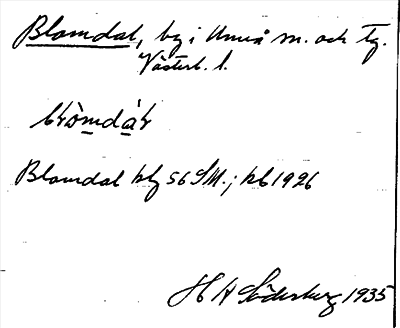 Blomdal, by i Umeå sn. och tg.
Västerb. l.
Blomdal bl 56 SM.; kb 1926
H A Söderberg 1935